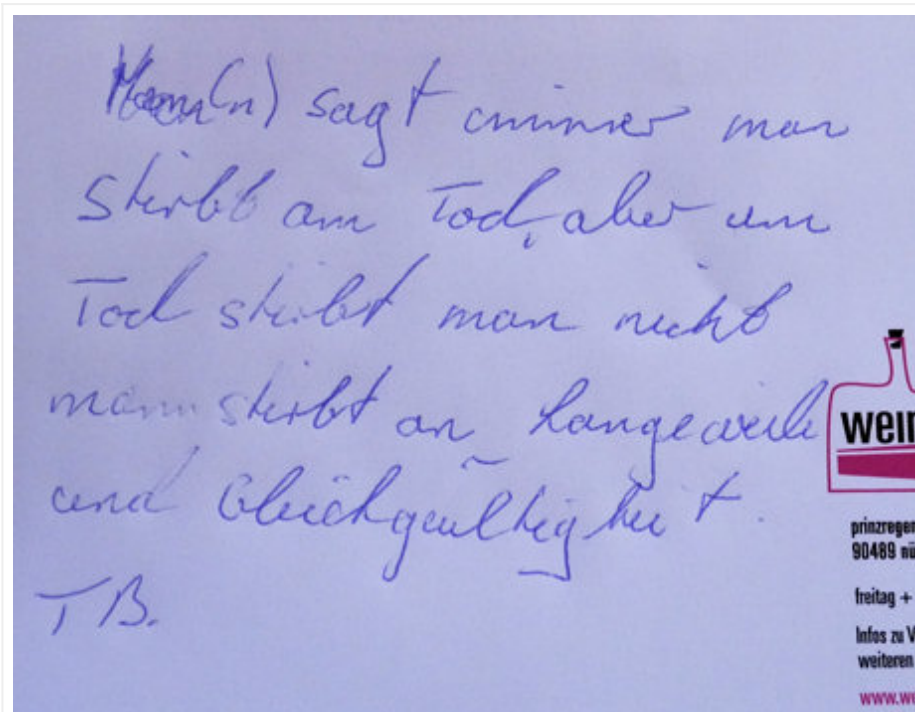 Man(n) sagt immer man
stirbt am Tod, aber am
Tod stirbt man nicht
mann stirbt an Langeweile
und Gleichgültigkeit.
TB.
wein
prinzregen
90489 nü
freitag +
Infos zu V
weiteren
www.we